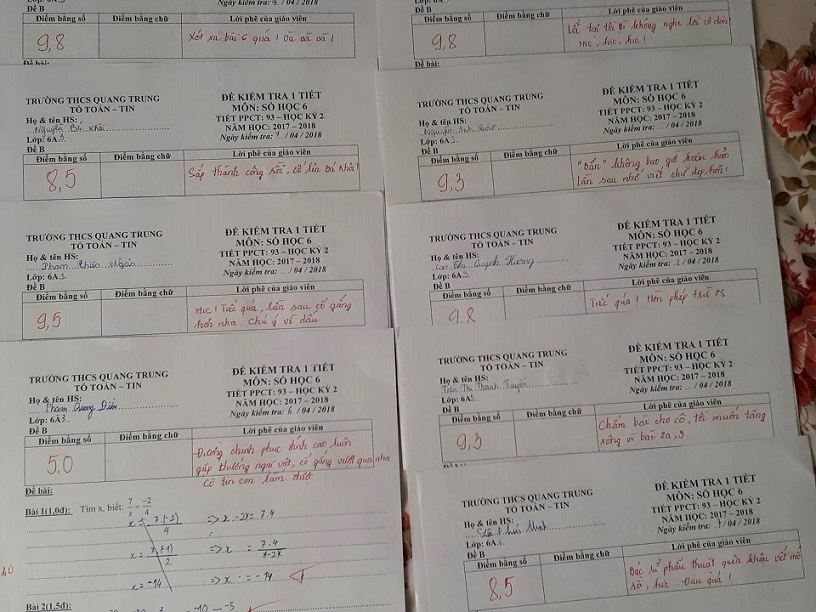 Đề B
Ngày kiểm tra: 4 / 04 / 2018
Lời phê của giáo viên
9,8
Xót xa bài 6 quá! Oà oà oà!
Đề bài:
TRƯỜNG THCS QUANG TRUNG
TỔ TOÁN – TIN
ĐỀ KIỂM TRA 1 TIẾT
MÔN: SỐ HỌC 6
TIẾT PPCT: 93 – HỌC KỲ 2
NĂM HỌC: 2017 – 2018
Ngày kiểm tra: / 04 / 2018
Họ & tên HS:
Nguyễn Bá Khôi
Lớp: 6A3
Đề B
Điểm bằng số Điểm bằng chữ Lời phê của giáo viên
8,5
Sắp thành công rồi, cố lên Bá Khôi!
TRƯỜNG THCS QUANG TRUNG
TỔ TOÁN – TIN
ĐỀ KIỂM TRA 1 TIẾT
MÔN: SỐ HỌC 6
TIẾT PPCT: 93 – HỌC KỲ 2
NĂM HỌC: 2017 – 2018
Ngày kiểm tra: ... / 04 / 2018
Họ & tên HS:
Phạm Thiên Ngân
Lớp: 6A3
Đề B
Điểm bằng số Điểm bằng chữ Lời phê của giáo viên
9,5
Hic! Tiếc quá, lần sau cố gắng
hơn nha. Chú ý về dấu
TRƯỜNG THCS QUANG TRUNG
TỔ TOÁN – TIN
ĐỀ KIỂM TRA 1 TIẾT
MÔN: SỐ HỌC 6
TIẾT PPCT: 93 – HỌC KỲ 2
NĂM HỌC: 2017 – 2018
Ngày kiểm tra: 6 / 04 / 2018
Họ & tên HS:
Phạm Quang
Lớp: 6A3
Đề B
Điểm bằng số Điểm bằng chữ Lời phê của giáo viên
5,0
Đường chinh phục đỉnh cao luôn
gặp chướng ngại vật, cố gắng vượt qua nha
cô tin con làm được
Đề bài:
Bài 1(1,0đ): Tìm x, biết: 7/x = -2/4
x = 7.(-2)/4 => x.-2x = 7.4
x = 7.(-1)/2 => x = 7.4/1-2x
x = -14 => x = -14
Bài 2(1,5đ)
Đề B
Ngày kiểm tra: / 04 / 2018
Lời phê của giáo viên
9,8
Lỗi tại tôi vì không nghe lời cô dặn
Hic, hic, hic!
Đề bài:
TRƯỜNG THCS QUANG TRUNG
TỔ TOÁN – TIN
ĐỀ KIỂM TRA 1 TIẾT
MÔN: SỐ HỌC 6
TIẾT PPCT: 93 – HỌC KỲ 2
NĂM HỌC: 2017 – 2018
Ngày kiểm tra: ... / 04 / 2018
Họ & tên HS:
Nguyễn Anh
Lớp: 6A3
Đề B
Điểm bằng số Điểm bằng chữ Lời phê của giáo viên
9,3
không bao giờ hoàn hảo
lần sau nhớ viết chữ đẹp hơn!
TRƯỜNG THCS QUANG TRUNG
TỔ TOÁN – TIN
ĐỀ KIỂM TRA 1 TIẾT
MÔN: SỐ HỌC 6
TIẾT PPCT: 93 – HỌC KỲ 2
NĂM HỌC: 2017 – 2018
Ngày kiểm tra: 3 / 04 / 2018
Họ & tên HS:
Cao Thu Quỳnh Hương
Lớp: 6A3
Đề B
Điểm bằng số Điểm bằng chữ Lời phê của giáo viên
9,8
Tiếc quá! Hên phép trừ PS
TRƯỜNG THCS QUANG TRUNG
TỔ TOÁN – TIN
ĐỀ KIỂM TRA 1 TIẾT
MÔN: SỐ HỌC 6
TIẾT PPCT: 93 – HỌC KỲ 2
NĂM HỌC: 2017 – 2018
Ngày kiểm tra: ... / 04 / 2018
Họ & tên HS:
Trần Thị Thanh Tuyền
Lớp: 6A3
Đề B
Điểm bằng số Điểm bằng chữ Lời phê của giáo viên
9,3
Chấm bài cho cô, tôi muốn tăng
xông vì bài 2a, 3
TRƯỜNG THCS QUANG TRUNG
TỔ TOÁN – TIN
ĐỀ KIỂM TRA 1 TIẾT
MÔN: SỐ HỌC 6
TIẾT PPCT: 93 – HỌC KỲ 2
NĂM HỌC: 2017 – 2018
Ngày kiểm tra: 7 / 04 / 2018
Họ & tên HS:
Lớp: 6A
Đề B
Điểm bằng số Điểm bằng chữ Lời phê của giáo viên
8,5
Bác sĩ phẫu thuật quên khâu vết mổ
rồi, hic. Đau quá!